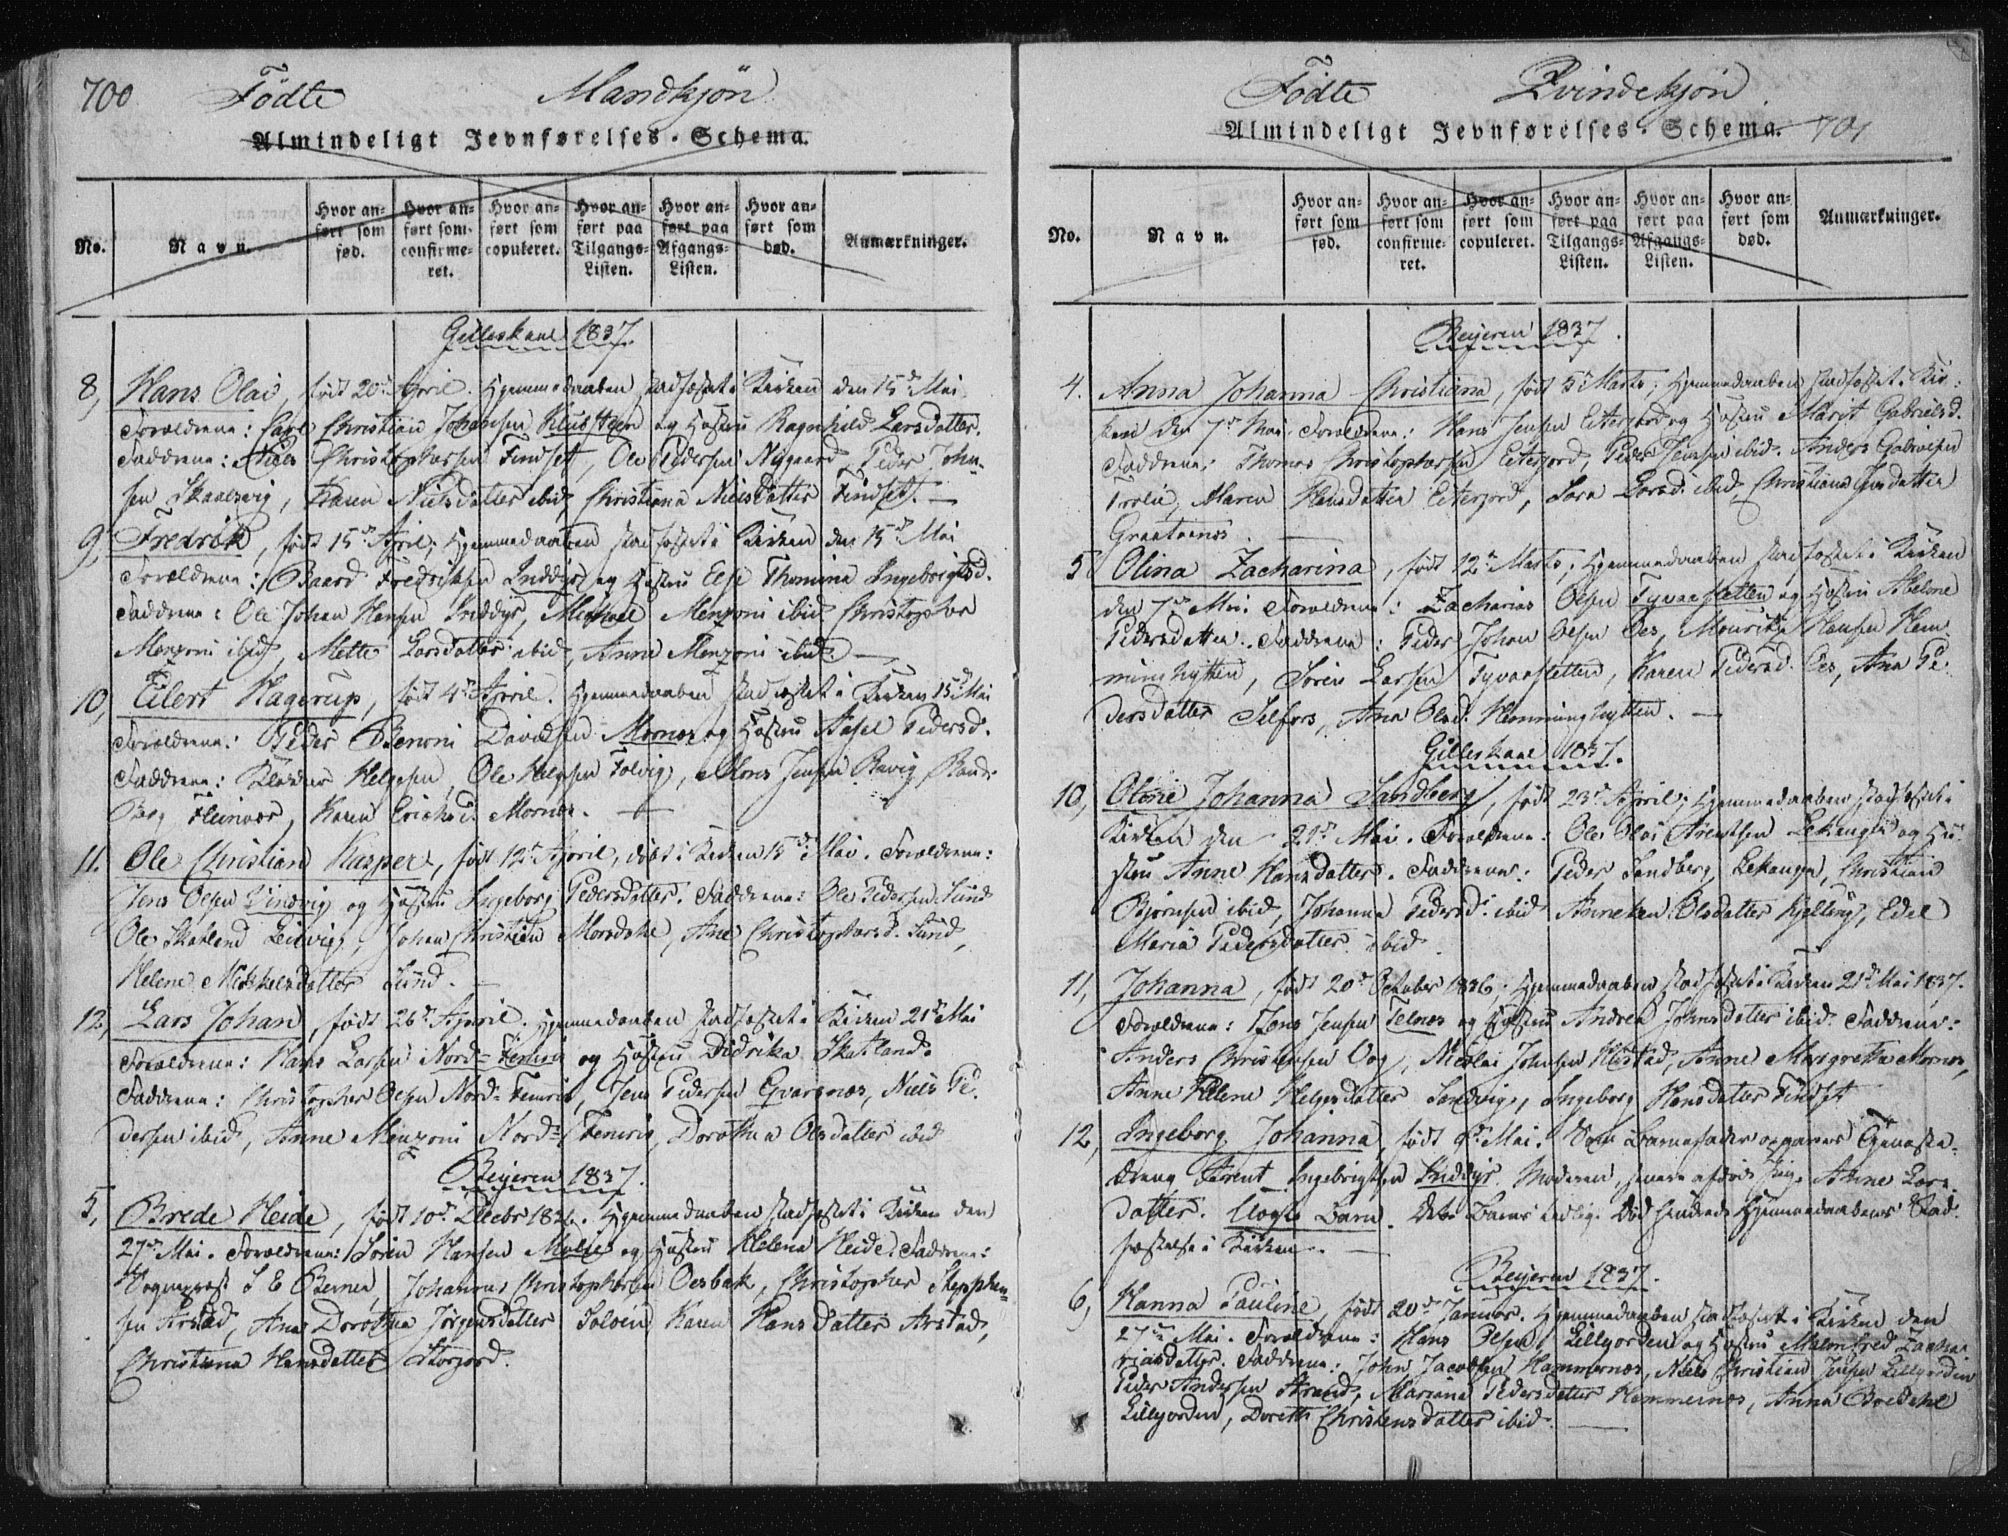 700 Fødte Mandkjøn
Almindeligt Jevnførelses-Schema.
No. Navn. Hvor anført som fød. Hvor anført som confirmeret. Hvor anført som copuleret. Hvor anført paa Tilgangs-Listen. Hvor anført paa Afgangs-Listen. Hvor anført som død. Anmærkninger.
Gilleskaal 1837.
8, Hans Olai, født 20de April. Hjemmedaaben stadfæstet i Kirken den 15de Mai
Forældrene: Carl Christian Johansen og Hustru Ragnhild Larsdatter.
Faddrene: Niels Christophersen Findset, Ole Pedersen Nygaard, Peder John-
sen Skaalsvig, Karen Nielsdatter ibid, Christiana Nielsdatter Findset. —
9, Fredrik, født 15de April, Hjemmedaaben stadfæstet i Kirken den 15de Mai
Forældrene: Baard Fredriksen Inddyr og Hustru Else Thomina Ingebrigtsd.
Faddrene: Ole Johan Hansen Inddyr, Michael Menzoni ibid, Christopher
Menzoni ibid, Mette Larsdatter ibid, Anne Menzoni ibid —
10, Eilert Hagerup, født 4de April. Hjemmedaaben stadfæstet i Kirken 15de Mai
Forældrene: Peder Benoni Davidsen Mornes og Hustru Aasel Pedersd.
Faddrene: Helgesen, Ole Helgesen Folvig, Mons Jensen
Fleinvær, Karen Erichsd. Mornes. —
11. Ole Christian Kasper, født 12te April, døbt i Kirken 15de Mai. Forældrene:
Jens Olsen Lindvig og Hustru Ingeborg Pedersdatter. Faddrene: Ole Pedersen Sund
Ole Skatland Leilvig, Johan Christian Morsdahl, Ane Christophersd. Sund,
Helene Mickelsdatter Sund. —
12, Lars Johan, født 26de April. Hjemmedaaben stadfæstet i Kirken 21de Mai
Forældrene: Hans Larsen Nord-Femris og Hustru Didrika Skatland.
Faddrene: Christopher Olsen Nord-Femris, Jens Pedersen Qvarsnæs, Niels Pe-
dersen ibid, Anne Menzoni Nord-Femris, Dorothea Olsdatter ibid
Beijeren 1837.
5, Brede Heide, født 10de Decbr 1836. Hjemmedaaben stadfæstet i Kirken den
27de Mai. Forældrene: Sören Hansen og Hustru Helena Heide. Faddrene:
Sogneprest S E Berner, Johannes Christophersen Oesbak, Christopher Stephen-
sen Arstad, Ane Dorothea Jörgensdatter Solöen, Karen Hansdatter Arstad,
Christiana Hansdatter Storjord.
Fødte Qvindekjön. 701
Almindeligt Jevnførelses-Schema.
No. Navn. Hvor anført som fød. Hvor anført som confirmeret. Hvor anført som copuleret. Hvor anført paa Tilgangs-Listen. Hvor anført paa Afgangs-Listen. Hvor anført som død. Anmærkninger.
Beijeren 1837.
4. Anna Johanna Christiana, født 5te Marts; Hjemmedaaben stadfæstet i Kir-
ken den 7de Mai. Forældrene: Hans Jensen Eiterjord og Hustru Marit Gabrielsd.
Faddrene: Thomas Christophersen Eiterjord, Peder Jensen ibid. Anders Gabrielsen
Trolie, Maren Hansdatter Eiterjord, Sara Larsd. ibid Christiana Jensdatter
Graatanæs. —
5 Olina Zacharina, født 12te Marts; Hjemmedaaben stadfæstet i Kirken
den 7de Mai. Forældrene: Zacharias Olsen Tyvaasletten og Hustru Abelone
Pedersdatter. Faddrene: Peder Johan Olsen Oes, Mouritz Hansen Hem-
minghytten, Sören Larsen Tyvaasletten, Karen Pedersd. Oes, Ana Pe-
dersdatter Selfors, Ana Olsd. Hemminghytten. —
Gilleskaal 1837.
10, Oline Johanna Sandberg, født 23de April; Hjemmedaaben stadfæstet i
Kirken den 21de Mai. Forældrene: Ole Olai Arentsen Lekangen og Hu-
stru Anne Hansdatter. Faddrene: Peder Sandberg Lekangen, Christian
Björnsen ibid, Johanna Pedersd. ibid Anneken Olsdatter Kjelling, Edel
Maria Pedersdatter ibid.
11, Johanna, født 20de October 1836; Hjemmedaaben stadfæstet i Kirken 21de Mai 1837.
Forældrene: Jens Jensen Telnes og Hustru Andrea Johnsdatter ibid. Faddrene:
Anders Christensen Vog, Nicolai Johnsen Hustad, Anne Margretha Mornes,
Anne Helene Helgesdatter Sandvig, Ingeborg Hansdatter Findset
12, Ingeborg Johanna, født 9de Mai. Som Barnefader opgaves Tjeneste-
dreng Arent Ingebrigtsen Inddyr. Moderen, senere afdöde Pige Anne Lars-
datter. Uægte Barn. Dette Barns tidlig Död hindrede Hjemmedaabens Stad-
fæstelse i Kirken. —
Beijeren 1837.
6, Hanna Pauline, født 20de Januar. Hjemmedaaben stadfæstet i Kirken den
27de Mai. Forældrene: Hans Olsen Lillejorden og Hustru Malenfred Zacha-
riasdatter. Faddrene: John Jacobsen Hammernæs, Niels Christian Jensen Lillejorden
Peder Andersen Strand, Mariana Pedersdatter Hammernæs, Anna Bredahl
Lillejorden, Doreth Christensdatter ibid. —